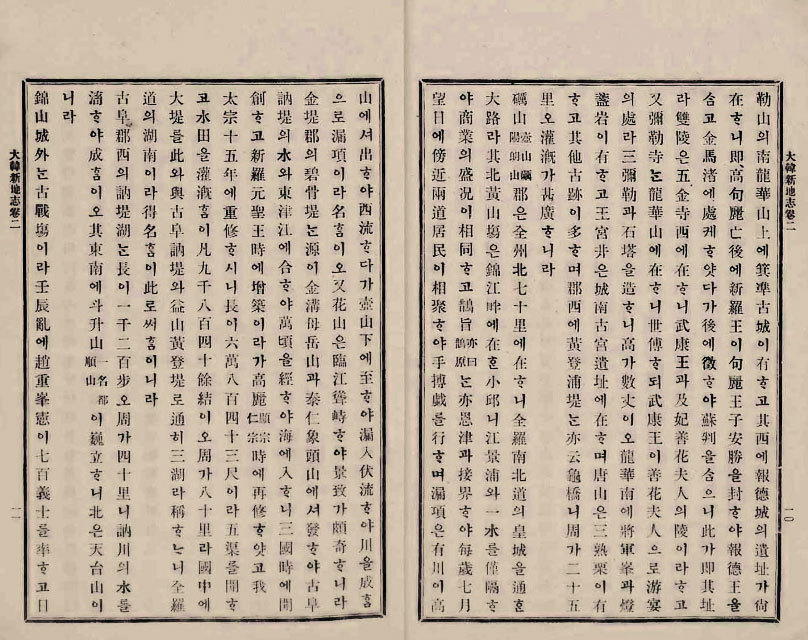 勒山의南龍華山上에箕準古城이有ᄒᆞ고其西에報德城의遺址가尙
在ᄒᆞ니即高句麗亡後에新羅王이句麗王子安勝을封ᄒᆞ야報德王을
숨고金馬渚에處케ᄒᆞ얏다가後에徵ᄒᆞ야蘇判을숨으니此가即其址
라雙陵은五金寺西에在ᄒᆞ니武康王과及妃善花夫人의陵이라ᄒᆞ고
又彌勒寺ᄂᆞᆫ龍華山에在ᄒᆞ니世傳ᄒᆞ되武康王이善花夫人으로游宴
의處라三彌勒과石塔을造ᄒᆞ니高가數丈이오龍華南에將軍峯과燈
盞岩이有ᄒᆞ고王宮井은城南古宮遺址에在ᄒᆞ며唐山은三熟栗이有
ᄒᆞ고其他古跡이多ᄒᆞ며郡西에黃登浦堤ᄂᆞᆫ亦云龜橋니周가二十五
里오灌漑가甚廣ᄒᆞ니라
礪山壺山礪陽朗山郡은全州北七十里에在ᄒᆞ니全羅南北道의皇城을通ᄒᆞᆫ
大路라其北黃山塲은錦江畔에在ᄒᆞᆫ小邱니江景浦와一水를僅隔ᄒᆞ
야商業의盛况이相同ᄒᆞ고鵠旨亦曰鵠原ᄂᆞᆫ亦恩津과接界ᄒᆞ야每歲七月
望日에傍近兩道居民이相聚ᄒᆞ야手搏戱를行ᄒᆞ며漏項은有川이高
大韓新地志卷二
一〇
山에셔出ᄒᆞ야西流ᄒᆞ다가壺山下에至ᄒᆞ야漏入伏流ᄒᆞ야川을成홈
으로漏項이라名홈이오又花山은臨江聳峙ᄒᆞ야景致가頗奇ᄒᆞ니라
金堤郡의碧骨堤ᄂᆞᆫ源이金溝母岳山과泰仁象頭山에셔發ᄒᆞ야古阜
訥堤의水와東津江에合ᄒᆞ야萬頃을經ᄒᆞ야海에入ᄒᆞ니三國時에開
創ᄒᆞ고新羅元聖王時에增築이라가高麗顯宗仁宗時에再修ᄒᆞ얏고我
太宗十五年에重修ᄒᆞ시니長이六萬八百四十三尺이라五渠를開ᄒᆞ
고水田을灌漑홈이凡九千八百四十餘結이오周가八十里라國中에
大堤를此와與古阜訥堤와益山黃登堤로通히三湖라稱ᄒᆞᄂᆞ니全羅
道의湖南이라得名홈이此로써홈이니라
古阜郡西의訥堤湖ᄂᆞᆫ長이一千二百步오周가四十里니訥川의水를
滀ᄒᆞ야成홈이오其東南에斗升山一名都順山이巍立ᄒᆞ니北은天台山이
니라
錦山城外ᄂᆞᆫ古戰塲이라壬辰亂에趙重峯憲이七百義士를率ᄒᆞ고日
大韓新地志卷二
一一